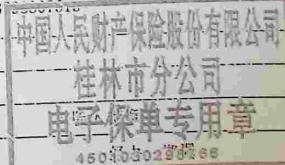 中国人民财产保险股份有限公司
桂林市分公司
电子保单专用章